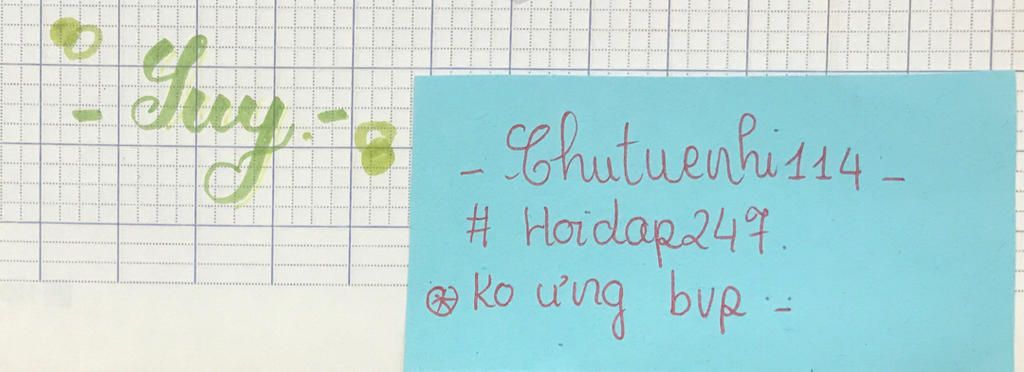 - Suy. -
- Chutuenhi114 -
# Hoidap247.
⊛ Ko ưng bvp :-